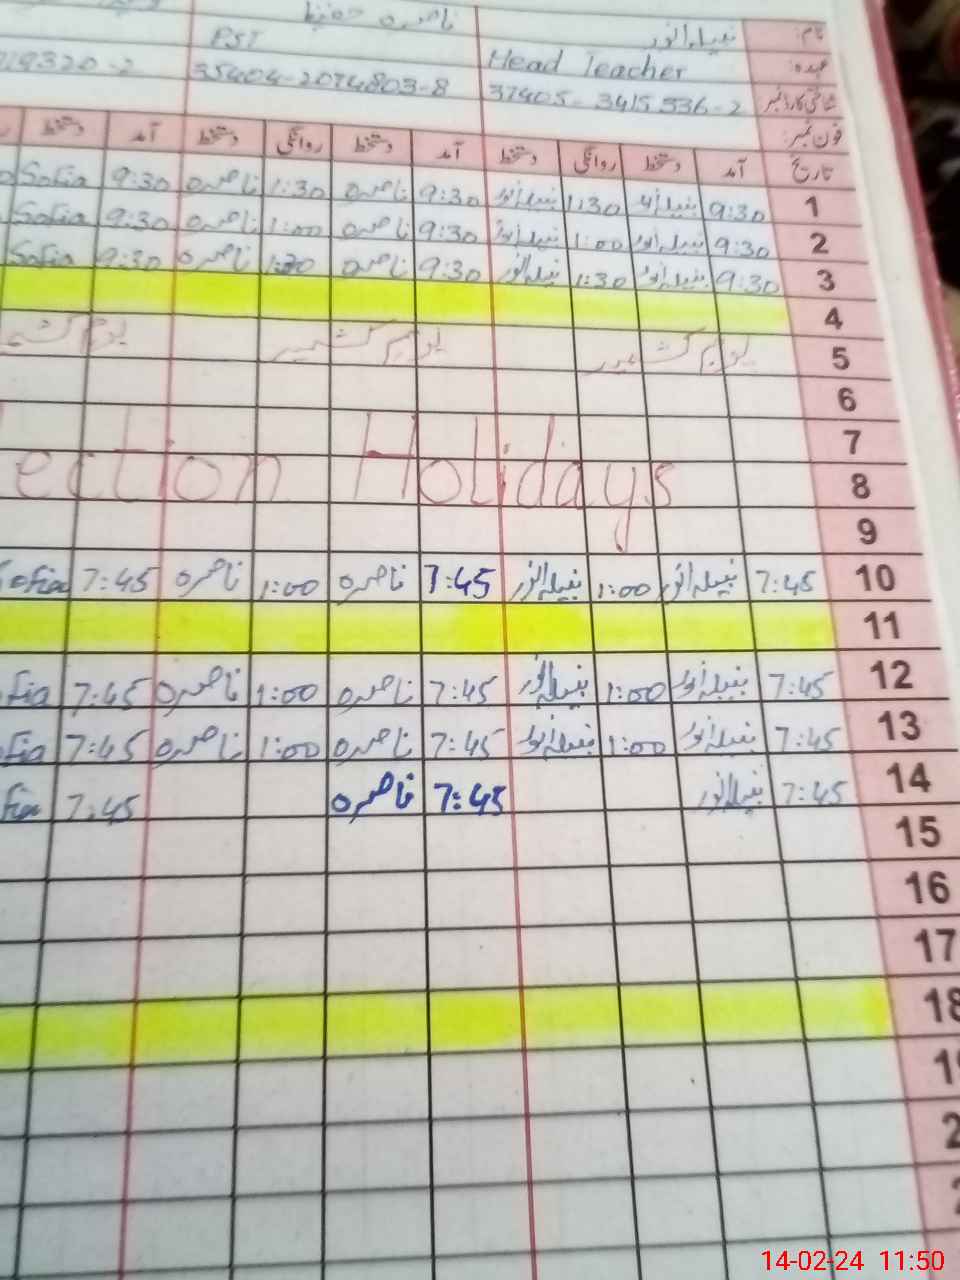 نام: نبیلہ انور ناصرہ حفیظ
عہدہ: Head Teacher PST
شناختی کارڈ نمبر 37405-3415336-2 35404-2074803-8 19320-2
فون نمبر:
تاریخ آمد دستخط روانگی دستخط آمد دستخط روانگی دستخط آمد دستخط
1 9:30 نبیلہ انور 1:30 نبیلہ انور 9:30 ناصرہ 1:30 ناصرہ 9:30 Sofia
2 9:30 نبیلہ انور 1:00 نبیلہ انور 9:30 ناصرہ 1:00 ناصرہ 9:30 Sofia
3 9:30 نبیلہ انور 1:30 نبیلہ انور 9:30 ناصرہ 1:30 ناصرہ 9:30 Sofia
4
5 یوم کشمیر یوم کشمیر یوم کشم
6
7
8 ection Holidays
9
10 7:45 نبیلہ انور 1:00 نبیلہ انور 7:45 ناصرہ 1:00 ناصرہ 7:45 ofia
11
12 7:45 نبیلہ انور 1:00 نبیلہ انور 7:45 ناصرہ 1:00 ناصرہ 7:45 fia
13 7:45 نبیلہ انور 1:00 نبیلہ انور 7:45 ناصرہ 1:00 ناصرہ 7:45 fia
14 7:45 نبیلہ انور 7:45 ناصرہ 7:45 fia
15
16
17
18
1
2
2
14-02-24 11:50